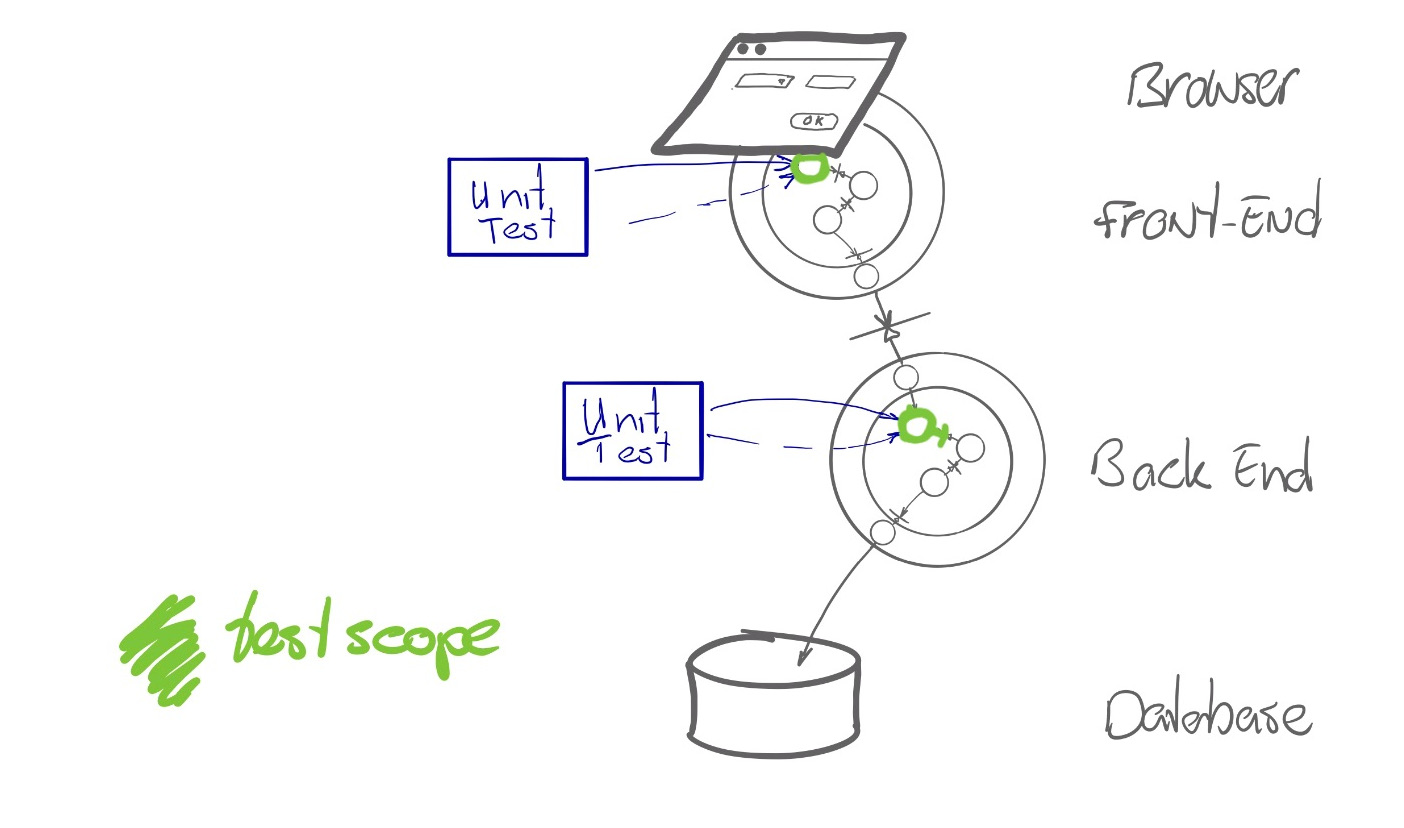 Browser
OK
Unit
Test
Front-End
Unit
Test
Back End
test scope
Database